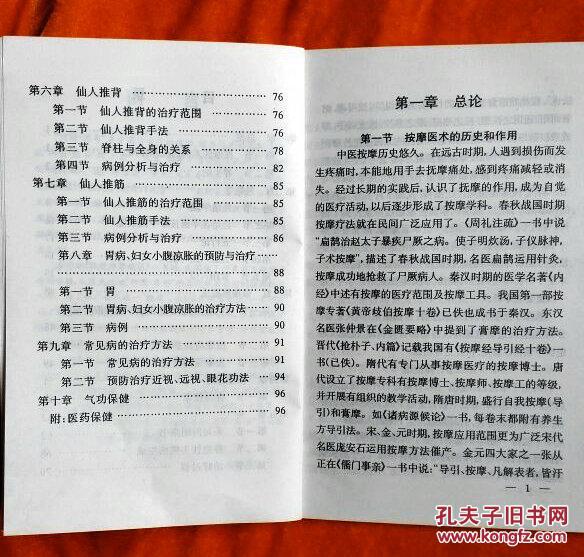 第六章 仙人推背 …………………… 76
第一节 仙人推背的治疗范围 ………… 76
第二节 仙人推背手法 ………………… 76
第三节 脊柱与全身的关系 …………… 78
第四节 病例分析与治疗 ……………… 82
第七章 仙人推筋 …………………… 85
第一节 仙人推筋的治疗范围 ………… 85
第二节 仙人推筋手法 ………………… 85
第三节 病例分析与治疗 ……………… 86
第八章 胃病、妇女小腹凉胀的预防与治疗 ……
…………………… 88
第一节 胃 …………………… 88
第二节 胃病、妇女小腹凉胀的治疗方法 … 90
第三节 病例 …………………… 90
第九章 常见病的治疗方法 …………… 91
第一节 常见病的治疗方法 …………… 91
第二节 预防治疗近视、远视、眼花功法 … 94
第十章 气功保健 …………………… 96
附:医药保健 …………………… 96
第一章 总论
第一节 按摩医术的历史和作用
中医按摩历史悠久。在远古时期,人遇到损伤而发
生疼痛时,本能地用手去抚摩痛处,感到疼痛减轻或消
失。经过长期的实践后,认识了抚摩的作用,成为自觉
的医疗活动,以后逐步形成了按摩学科。春秋战国时期
按摩疗法就在民间广泛应用了。《周礼注疏》一书中说
“扁鹊治赵太子暴疾尸厥之病。使子明炊汤,子仪脉神,
子术按摩”,描述了春秋战国时期,名医扁鹊运用针灸、
按摩成功地抢救了尸厥病人。秦汉时期的医学名著《内
经》中述有按摩的医疗范围及按摩工具。我国第一部按
摩专著《黄帝歧伯按摩十卷》已佚也成书于秦汉。东汉
名医张仲景在《金匮要略》中提到了膏摩的治疗方法。
晋代《抢朴子、内篇》记载我国有《按摩经导引经十卷》一
书(已佚)。隋代有专门从事按摩医疗的按摩博士。唐
代设立了按摩专科有按摩博士、按摩师、按摩工的等级,
并开展有组织的教学活动,隋唐时期,盛行自我按摩(导
引)和膏摩。如《诸病源候论》一书,每卷末都附有养生
方导引法。宋、金、元时期,按摩应用范围更为广泛宋代
名医庞安石运用按摩方法催产。金元四大家之一张从
正在《儒门事亲》一书中说:“导引、按摩、凡解表者,皆汗
— 1 —
孔夫子旧书网
www.kongfz.com